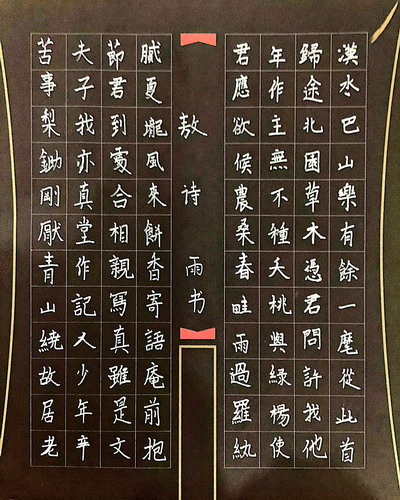 漢水巴山樂有餘一麾從此首
歸途北園草木憑君問許我他
年作主無不種夭桃與綠楊使
君應欲候農桑春畦雨過羅紈
敖诗雨书
膩夏壠風來餅香寄語庵前抱
節君到合相親寫真雖是文
夫子我亦真堂作記人少年辛
苦事梨鋤剛厭青山繞故居老